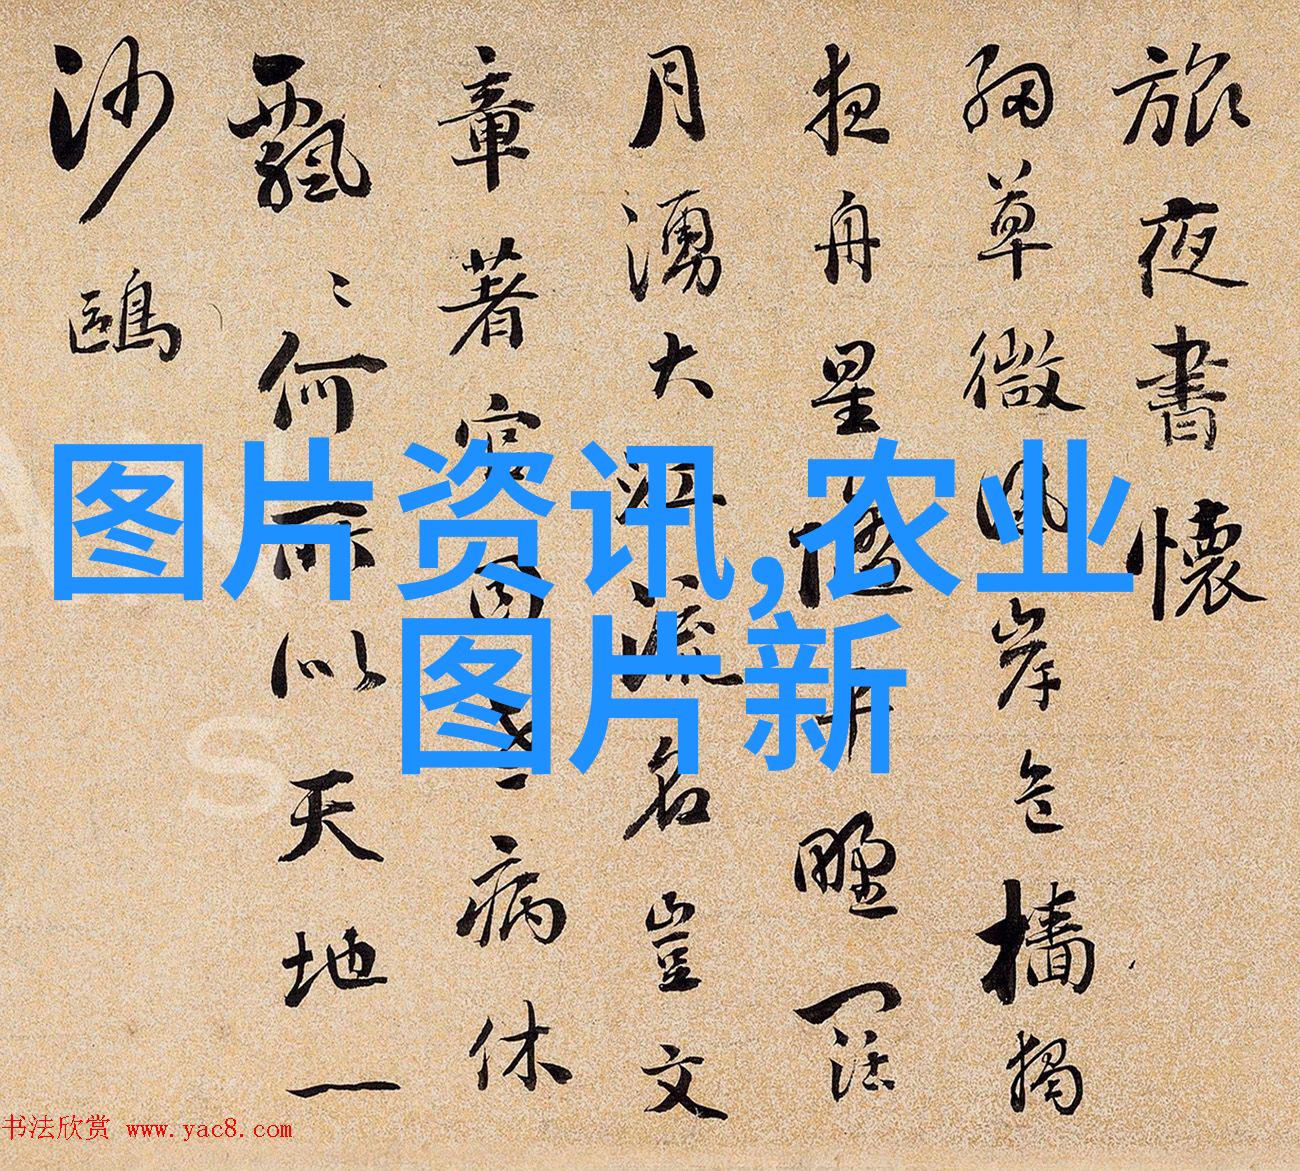 旅夜書懷
細草微風岸危檣獨
夜舟星平野闊
月湧大江流名豈文
章著官因老病休
飄〻何所似天地一
沙鷗
图片资讯,农业
图片新
书法欣赏 www.yac8.com